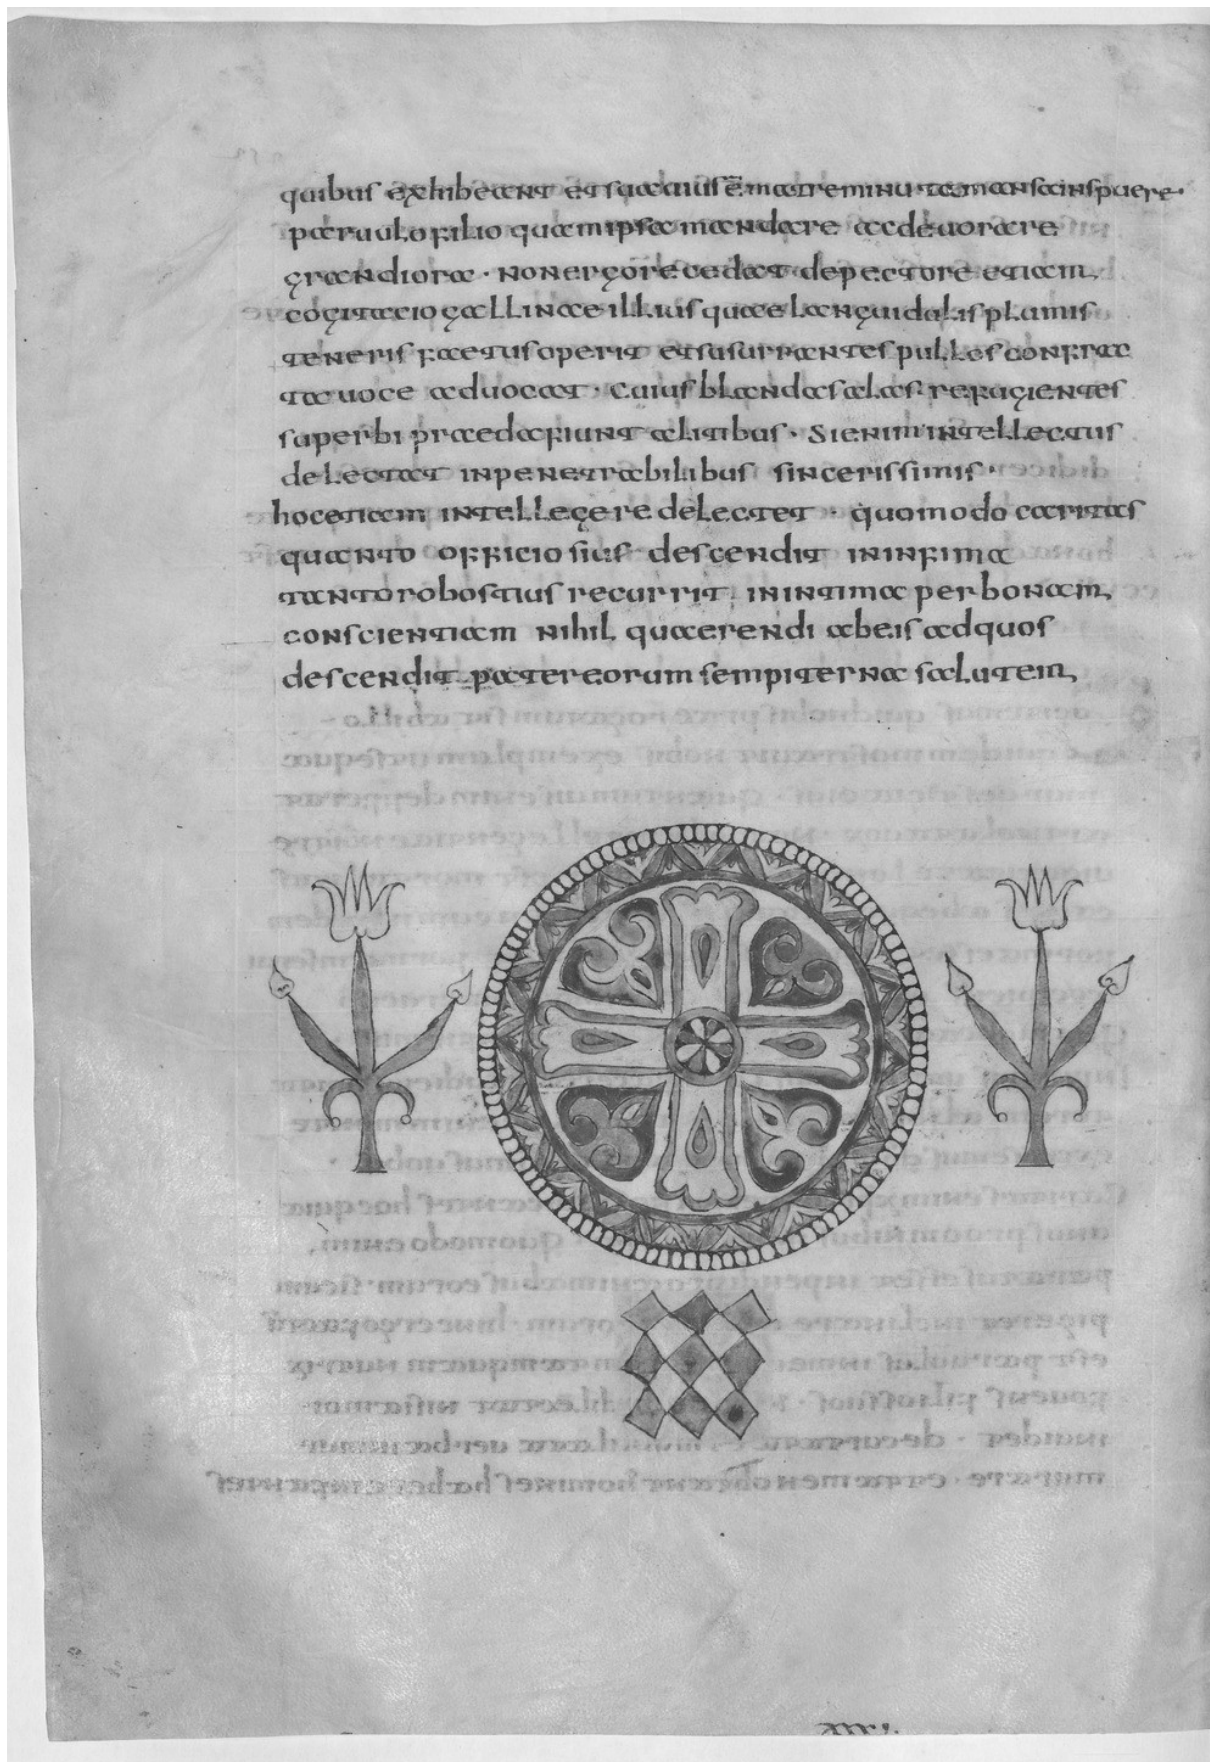 quibus exhibeant et suauius ē matre minuta mansa inspuere·
paruulo filio quam ipsa mandare ac deuorare
grandiora · non ergo recedat de pectore etiam
cogitatio gallinae illius quae languidulis plumis
teneris faetus operit et susurrantes pullos confrac
ta uoce aduocat · Cuius blandas alas refugientes
superbi praeda fiunt alitibus · Si enim intellectus
delectat inpenetrabilibus sincerissimis ·
hoc etiam intellegere delectet · quomodo caritas
quanto officiosius descendit in infima
tanto robostius recurrit in intima per bonam
conscientiam nihil quaerendi ab eis ad quos
descendit pater eorum sempiterna salutem